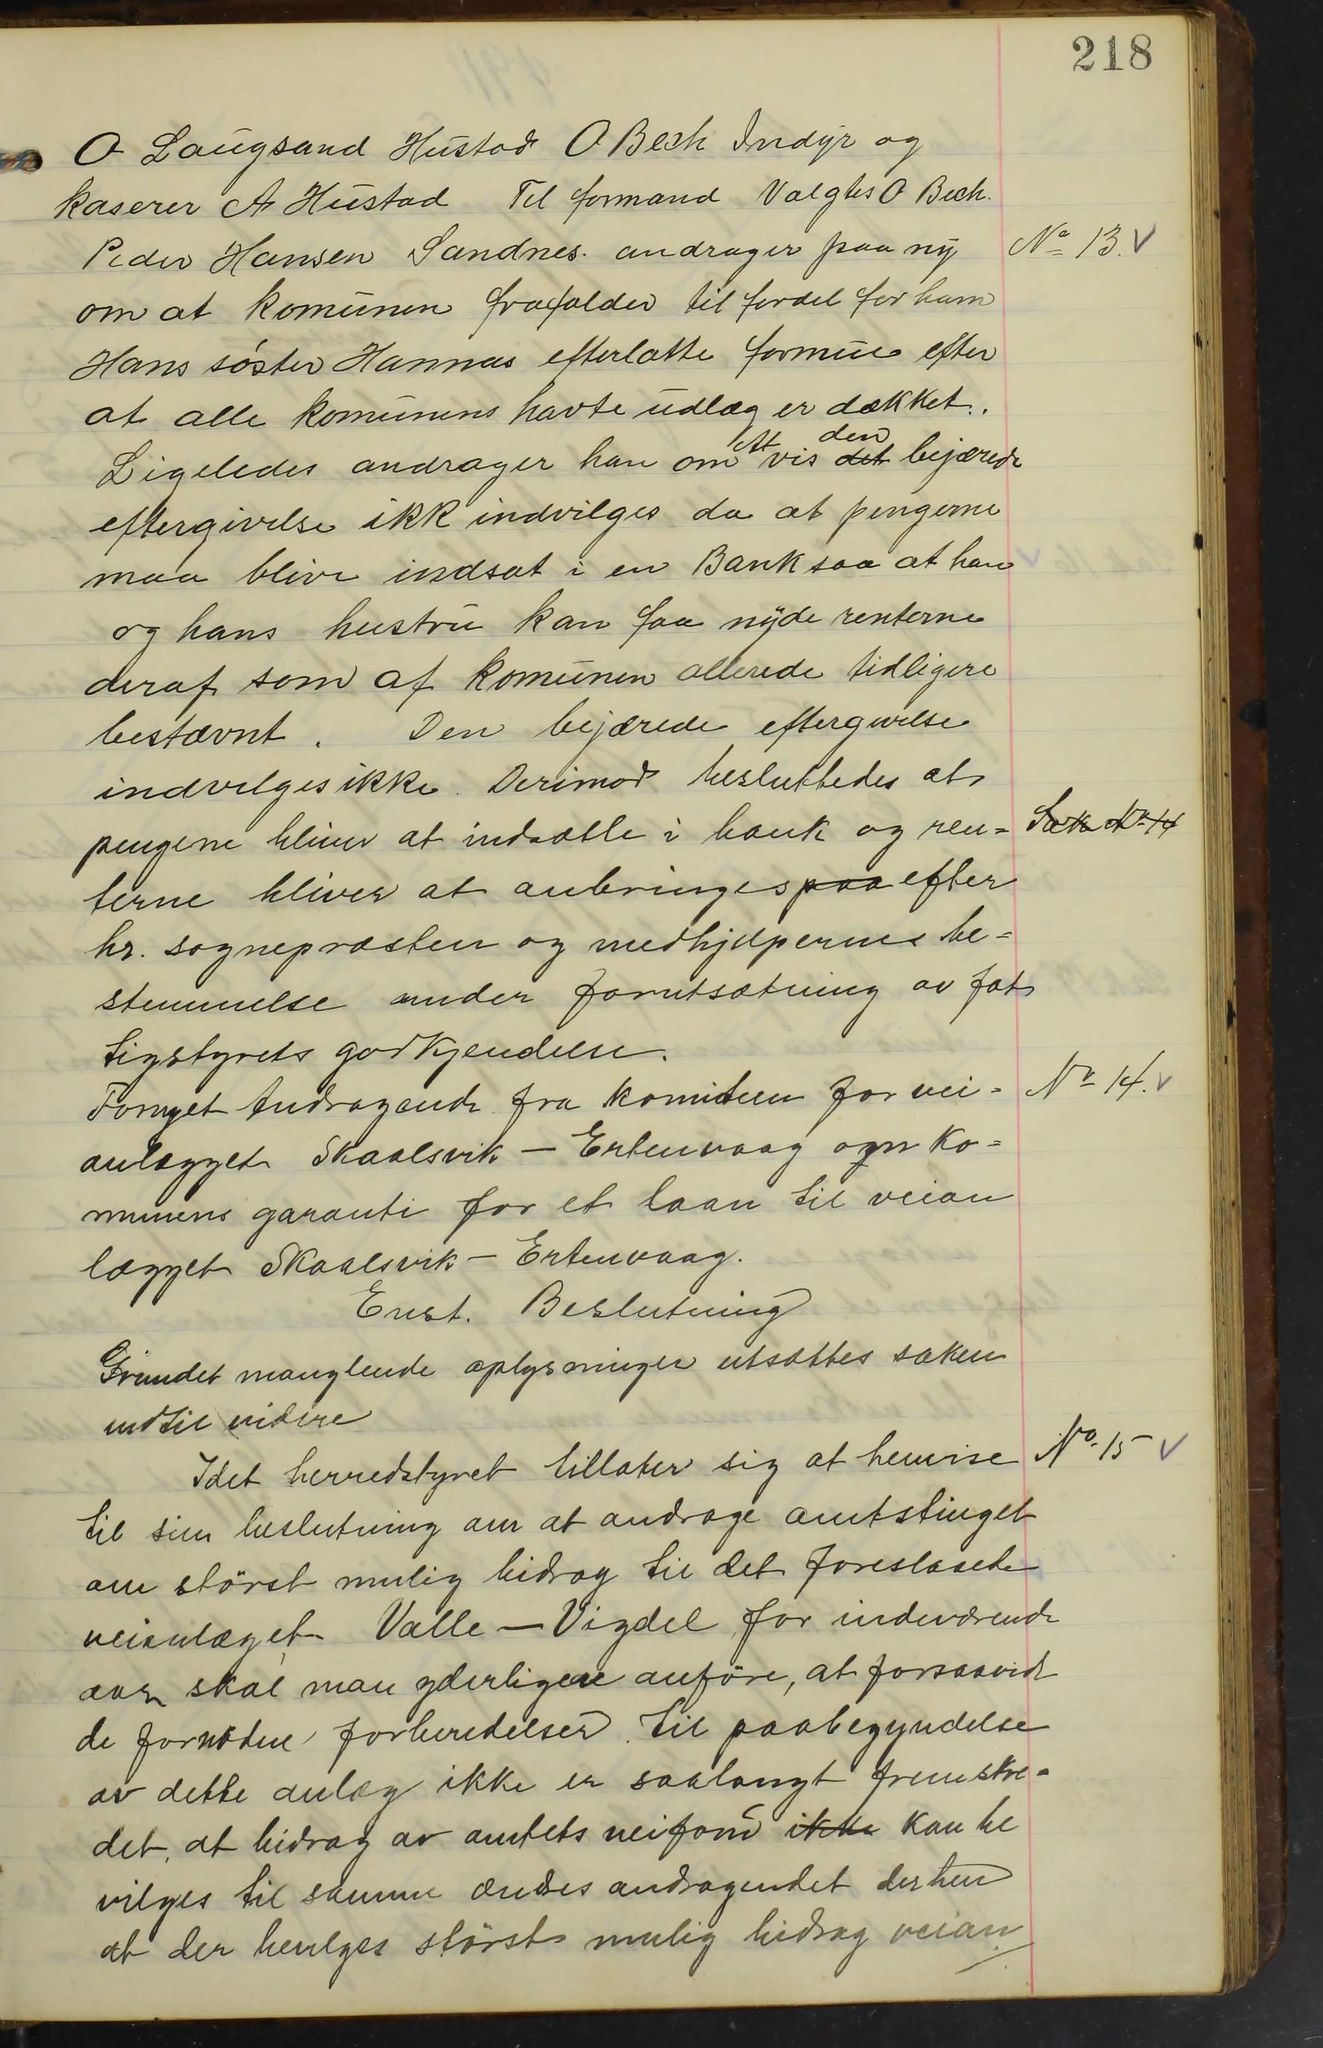 218
O Laugsand Hustad O Bech Indyr og
kaserer A Hustad Til formand Valgtes O Bech.
Peder Hansen Sandnes. andrager paa ny No 13. V
om at komunen frafalder til fordel for ham
Hans søster Hannas efterlatte formue efter
at alle komunens havte udlæg er dækket.
Ligeledes andrager han om At vis det den bejærede
eftergivelse ikk indvilges da at pengerne
maa blive indsat i en Bank saa at han
og hans hustru kan faa nyde renterne
deraf som af komunen allerede tidligere
bestævnt. Den bejærede eftergivelse
indvilges ikke. Derimod besluttedes at
pengene bliver at indsætte i bank og ren= Sak No 14
terne bliver at anbringes paa efter
hr. sognepræsten og medhjelpernes be=
stemmelse under forutsætning av fat
tigstyrets godkjendelse.
Fornyet Andragende fra komiteen for vei= No 14. V
anlægget Skaalsvik – Ertenvaag ogn ko=
munens garanti for et laan til veian
lægget Skaalsvik – Ertenvaag.
Enst. Beslutning
Grundet manglende oplysninger utsættes saken
indtil videre
Idet herredstyret tillater sig at henvise No 15 V
til sin beslutning om at andrage amtstinget
om störst mulig bidrag til det foreslaaede
veianlæget Valle – Vigdel for indeværende
aar skal man yderligere anföre, at forsaavidt
de fornødne forberedelser til paabegyndelse
av dette anlæg ikke er saalangt fremskre=
det, at bidrag av amtets veifond ikke kan be
vilges til samme ændres andragendet derhen
at der bevilges störst mulig bidrag veian